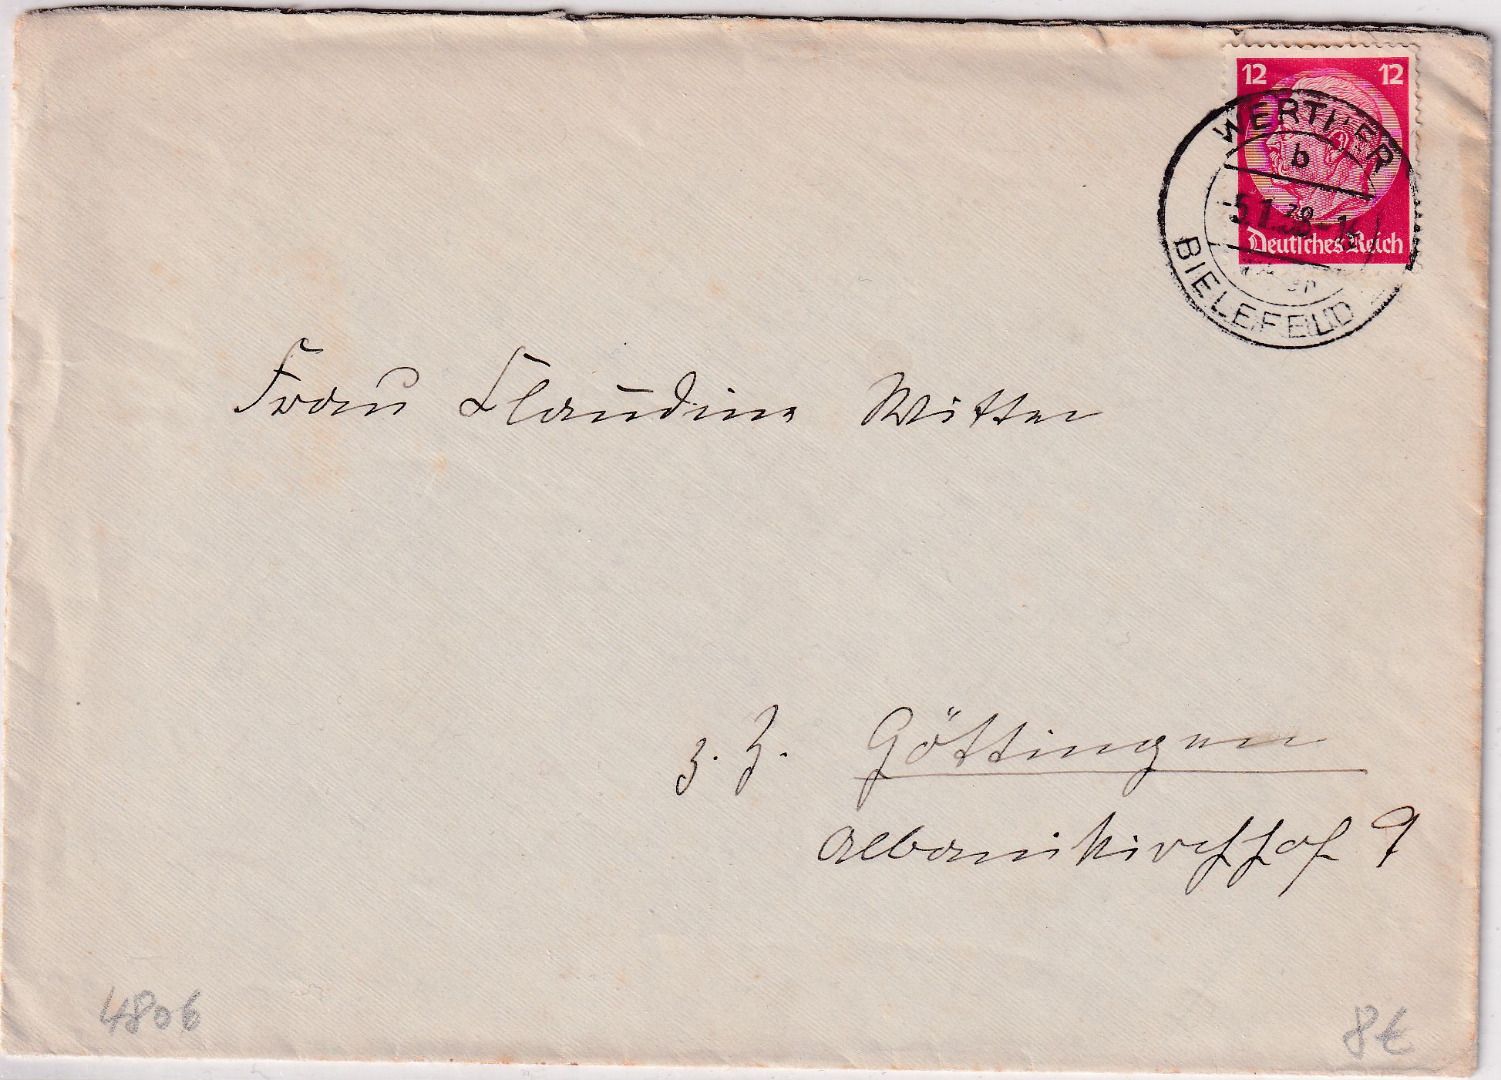 12 12
Deutsches Reich
WERTHER
b
5.1.38-15
BIELEFELD
Frau Claudine Witter
z. Z. Göttingen
Albanikirchhof 9
4806
8€